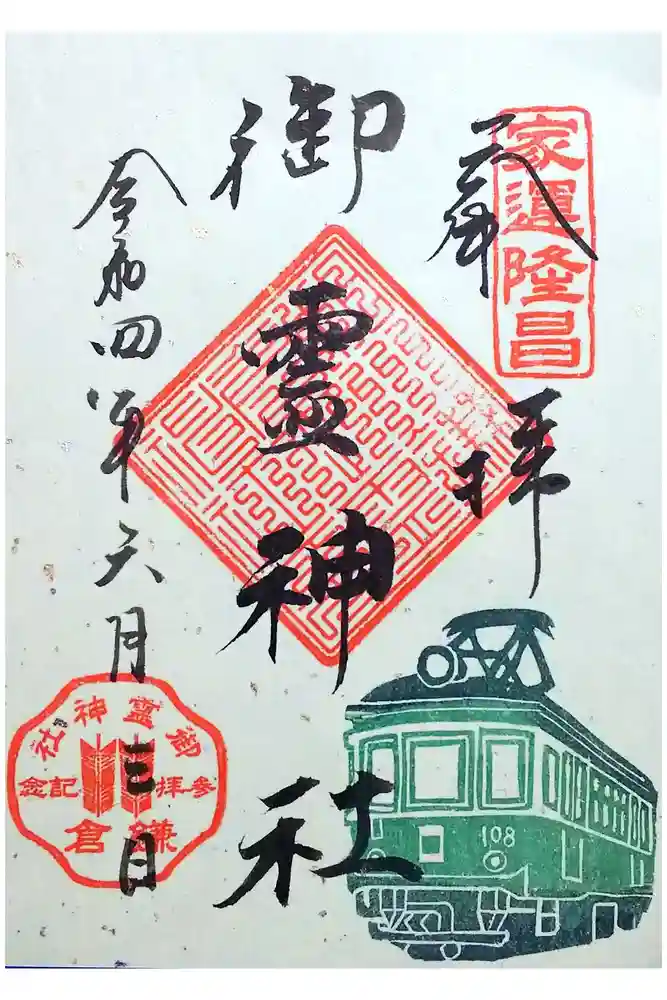 家運隆昌
奉拝
御霊神社
令和四年六月三日
御靈神社
參拝記念
鎌倉
108